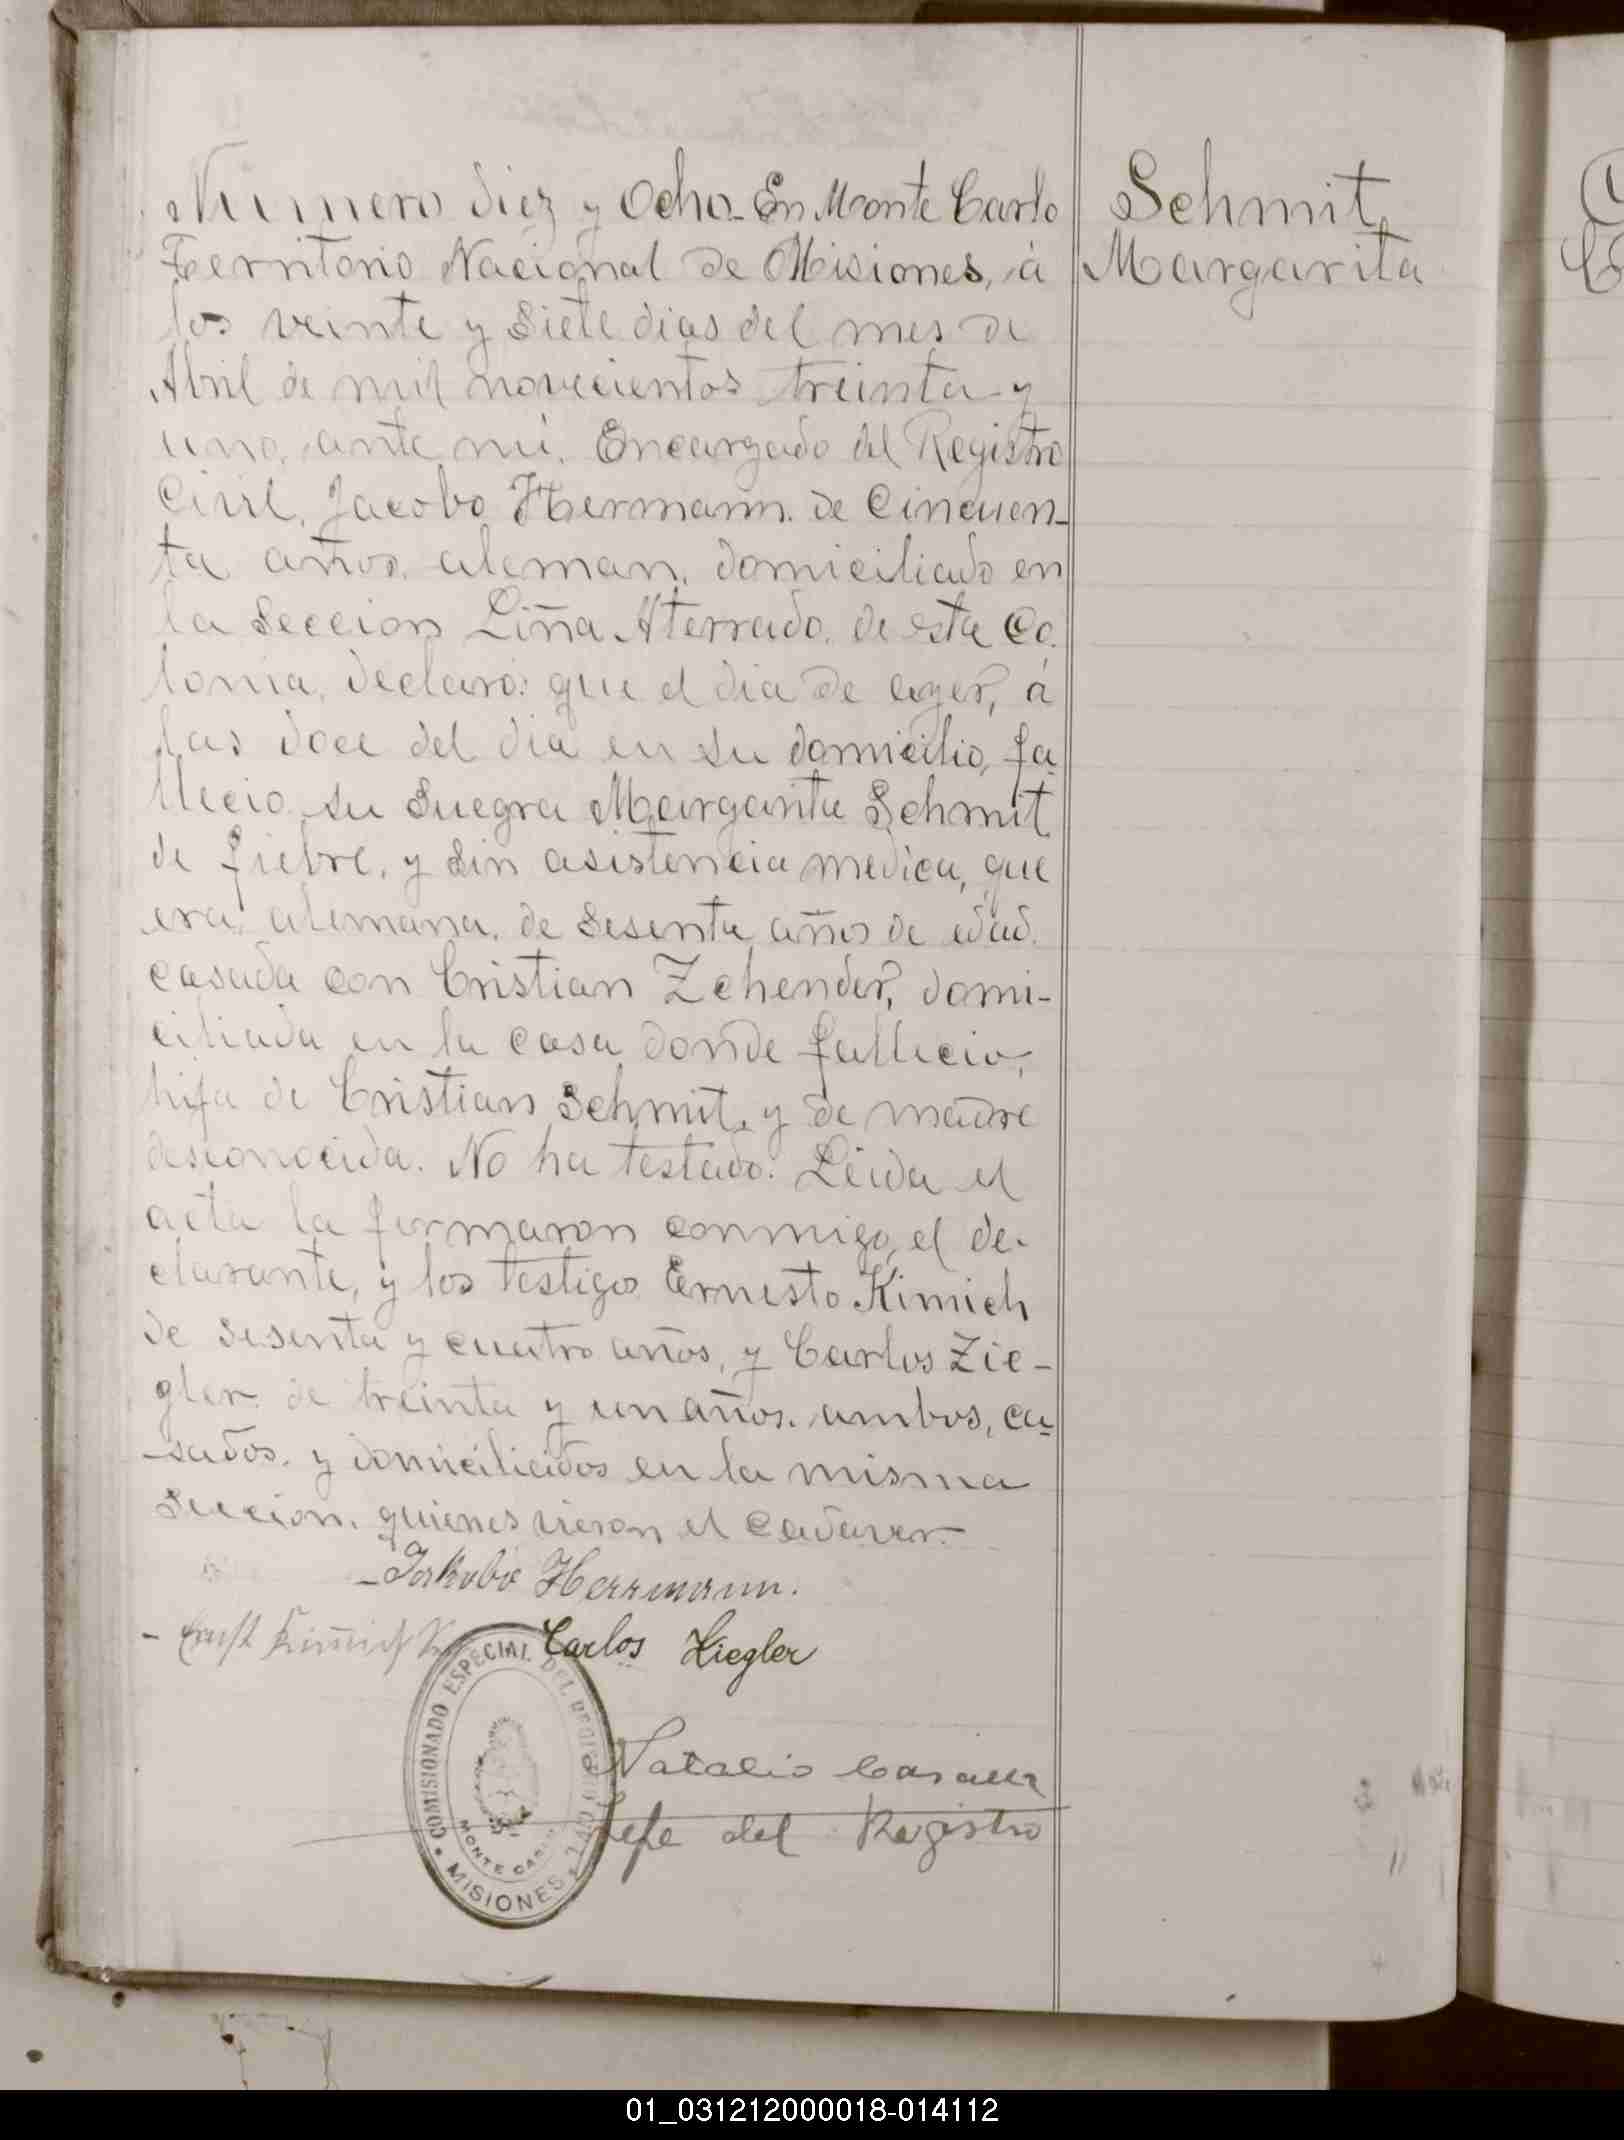 Numero diez y Ocho. En Monte Carlo
Territorio Nacional de Misiones, á
los veinte y siete dias del mes de
Abril de mil novecientos treinta y
uno, ante mi, Encargado del Registro
Civil, Jacobo Hermann, de Cincuen-
ta años, aleman, domiciliado en
la Seccion Liña Aterrado, de esta Co-
lonia, declaro: que el dia de ayer, á
las doce del dia en su domicilio, fa-
llecio su suegra Margarita Schmit
de fiebre, y sin asistencia medica, que
era alemana, de sesenta años de edad,
casada con Cristian Zehender, domi-
ciliada en la casa donde fallecio,
hija de Cristian Schmit, y de madre
desconocida. No ha testado. Leida el
acta la firmaron conmigo, el de-
clarante, y los testigos Ernesto Kimich
de sesenta y cuatro años, y Carlos Zie-
gler de treinta y un años, ambos, ca-
sados, y domiciliados en la misma
Seccion, quienes vieron el cadaver.
Jakobo Herrmann.
Ernst Kimmich Carlos Ziegler
Natalio
Jefe del Registro
COMISIONADO ESPECIAL DEL REGISTRO CIVIL
MONTE CARLO
MISIONES
Schmit,
Margarita
01_031212000018-014112